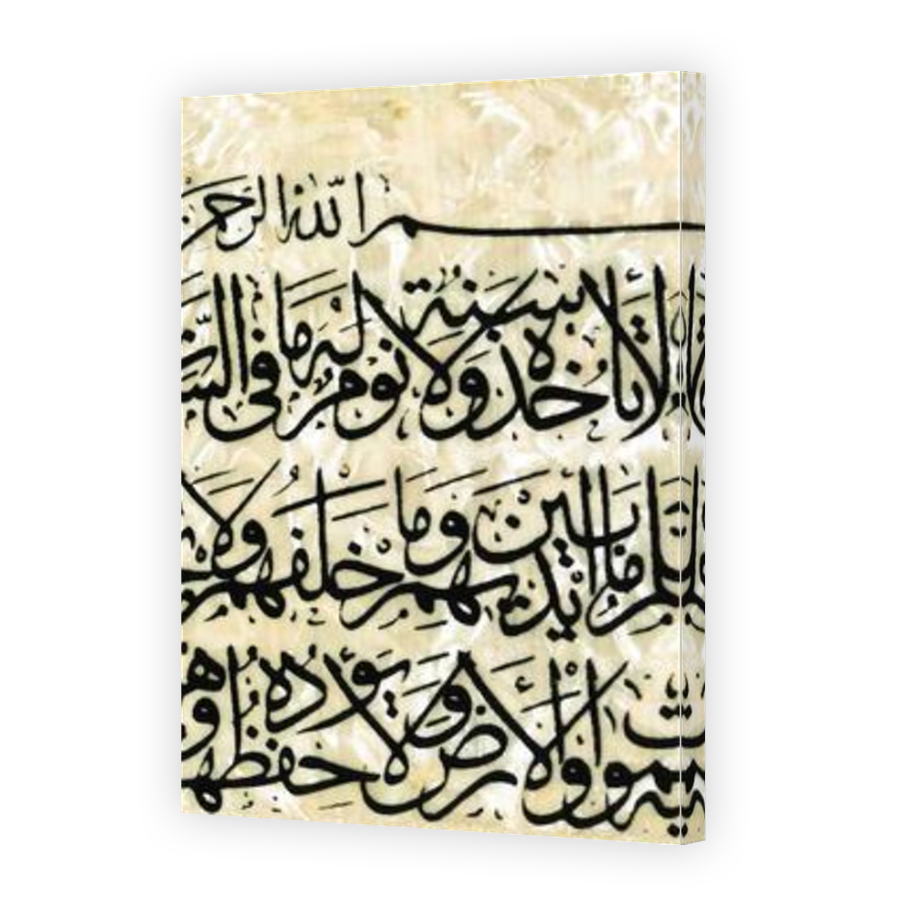 ـسم الله الرحمن
لا تأخذه سنة ولا نوم له ما في
يعلم ما بين أيديهم وما خلفهم ولا
السموات والأرض ولا يؤده حفظهما